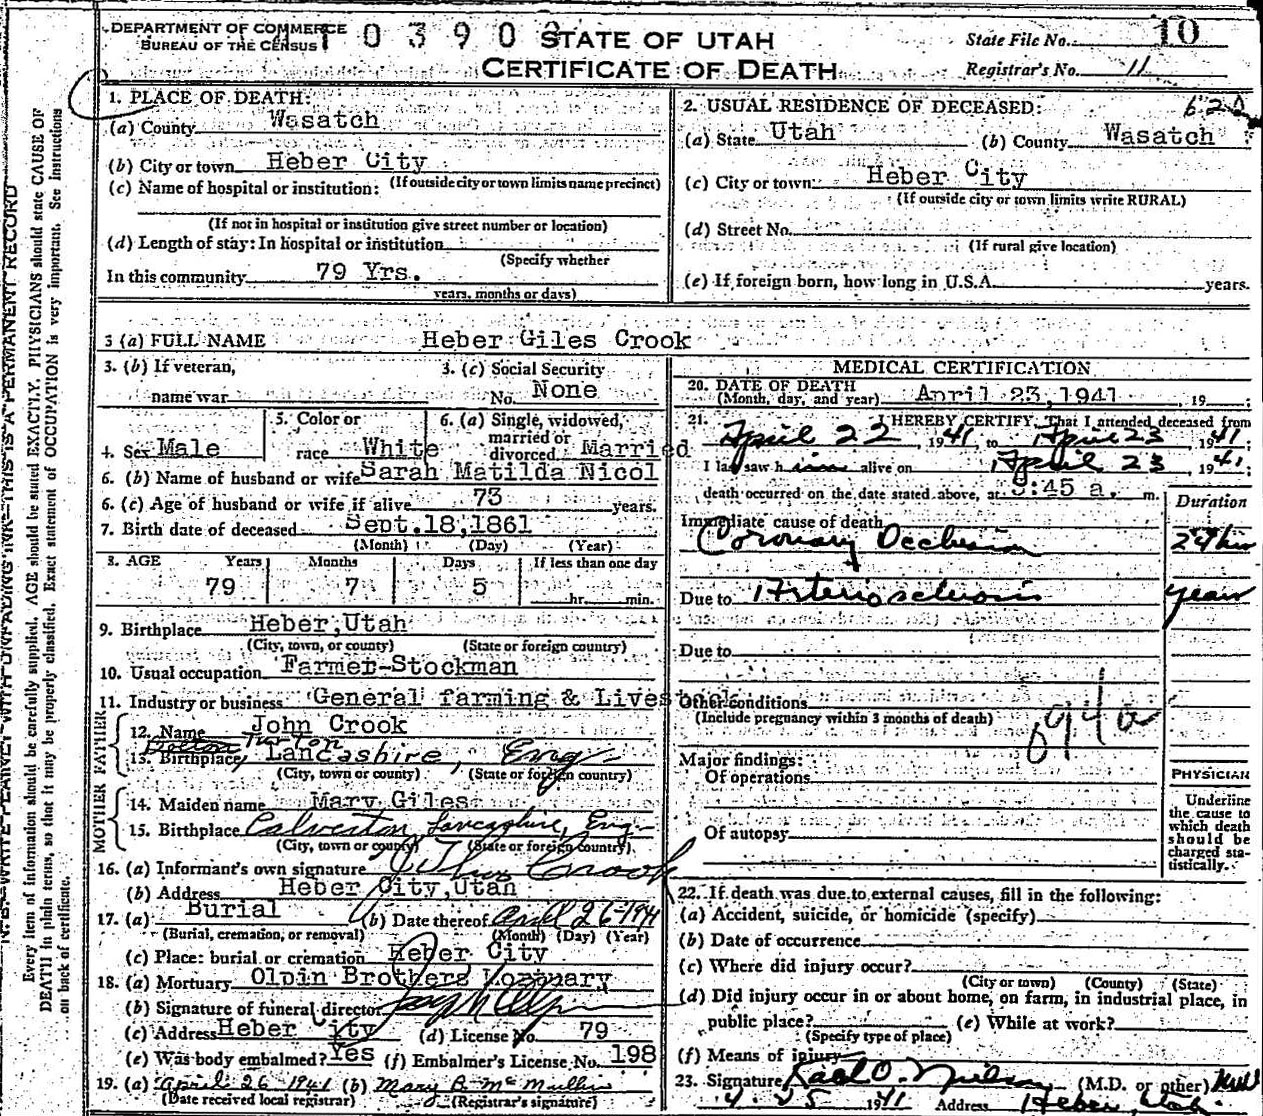 DEPARTMENT OF COMMERCE
BUREAU OF THE CENSUS
0 3 9 0
STATE OF UTAH
CERTIFICATE OF DEATH
State File No. 10
Registrar's No. 11
1. PLACE OF DEATH:
(a) County Wasatch
(b) City or town Heber City
(If outside city or town limits name precinct)
(c) Name of hospital or institution:
(If not in hospital or institution give street number or location)
(d) Length of stay: In hospital or institution
(Specify whether
In this community 79 Yrs.
years, months or days)
2. USUAL RESIDENCE OF DECEASED:
(a) State Utah (b) County Wasatch
(c) City or town Heber City
(If outside city or town limits write RURAL)
(d) Street No.
(If rural give location)
(e) If foreign born, how long in U.S.A. years.
3 (a) FULL NAME Heber Giles Crook
3. (b) If veteran,
name war
3. (c) Social Security
No. None
4. Sex Male
5. Color or
race White
6. (a) Single, widowed,
married or
divorced Married
6. (b) Name of husband or wife Sarah Matilda Nicol
6. (c) Age of husband or wife if alive 73 years.
7. Birth date of deceased Sept. 18, 1861
(Month) (Day) (Year)
8. AGE Years Months Days If less than one day
79 7 5 hr. min.
9. Birthplace Heber, Utah
(City, town, or county) (State or foreign country)
10. Usual occupation Farmer-Stockman
11. Industry or business General farming & Livestock
FATHER
12. Name John Crook
Bolton Turton
13. Birthplace, Lancashire, Eng-
(City, town or county) (State or foreign country)
MOTHER
14. Maiden name Mary Giles
15. Birthplace Calverton, Lancashire, Eng-
(City, town or county) (State or foreign country)
16. (a) Informant's own signature Crook
(b) Address Heber City, Utah
17. (a) Burial (b) Date thereof April 26-1941
(Burial, cremation, or removal) (Month) (Day) (Year)
(c) Place: burial or cremation Heber City
18. (a) Mortuary Olpin Brothers Mortuary
(b) Signature of funeral director
(c) Address Heber City (d) License No. 79
(e) Was body embalmed? Yes (f) Embalmer's License No. 198
19. (a) April 26 1941 (b) Mary B. McMullin
(Date received local registrar) (Registrar's signature)
MEDICAL CERTIFICATION
20. DATE OF DEATH
(Month, day, and year) April 23, 1941, 19
21. I HEREBY CERTIFY, That I attended deceased from
April 22, 1941 to April 23 1941;
I last saw him alive on April 23, 1941;
death occurred on the date stated above, at :45 a. m.
Duration
Immediate cause of death
Coronary Occlusion 24 hrs
Due to Arteriosclerosis years
Due to
Other conditions
(Include pregnancy within 3 months of death)
94a
Major findings:
Of operations
Of autopsy
PHYSICIAN
Underline
the cause to
which death
should be
charged sta-
tistically.
22. If death was due to external causes, fill in the following:
(a) Accident, suicide, or homicide (specify)
(b) Date of occurrence
(c) Where did injury occur?
(City or town) (County) (State)
(d) Did injury occur in or about home, on farm, in industrial place, in
public place? (e) While at work?
(Specify type of place)
(f) Means of injury
23. Signature Karl O. Nielson (M.D. or other)
4-25 1941 Address Heber, Utah.
N.B.—WRITE PLAINLY WITH UNFADING INK—THIS IS A PERMANENT RECORD
Every item of information should be carefully supplied. AGE should be stated EXACTLY. PHYSICIANS should state CAUSE OF
DEATH in plain terms, so that it may be properly classified. Exact statement of OCCUPATION is very important. See Instructions
on back of certificate.